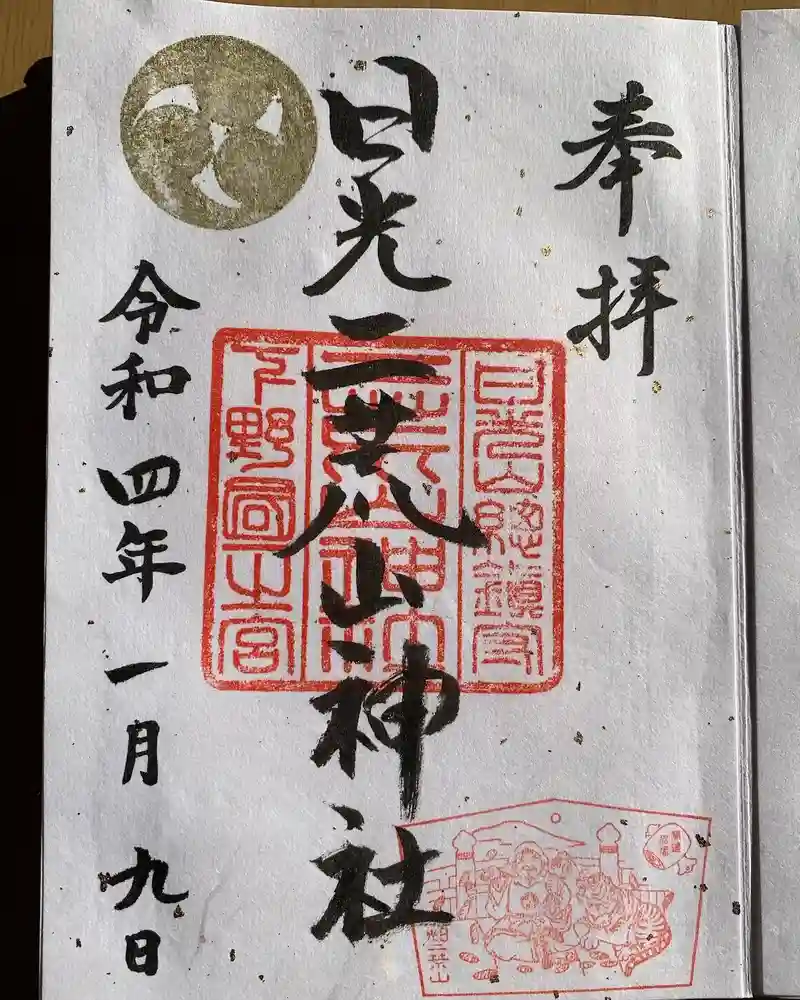 奉拝
日光二荒山神社
日光山總鎮守
二荒山神社
下野國一之宮
令和四年一月九日